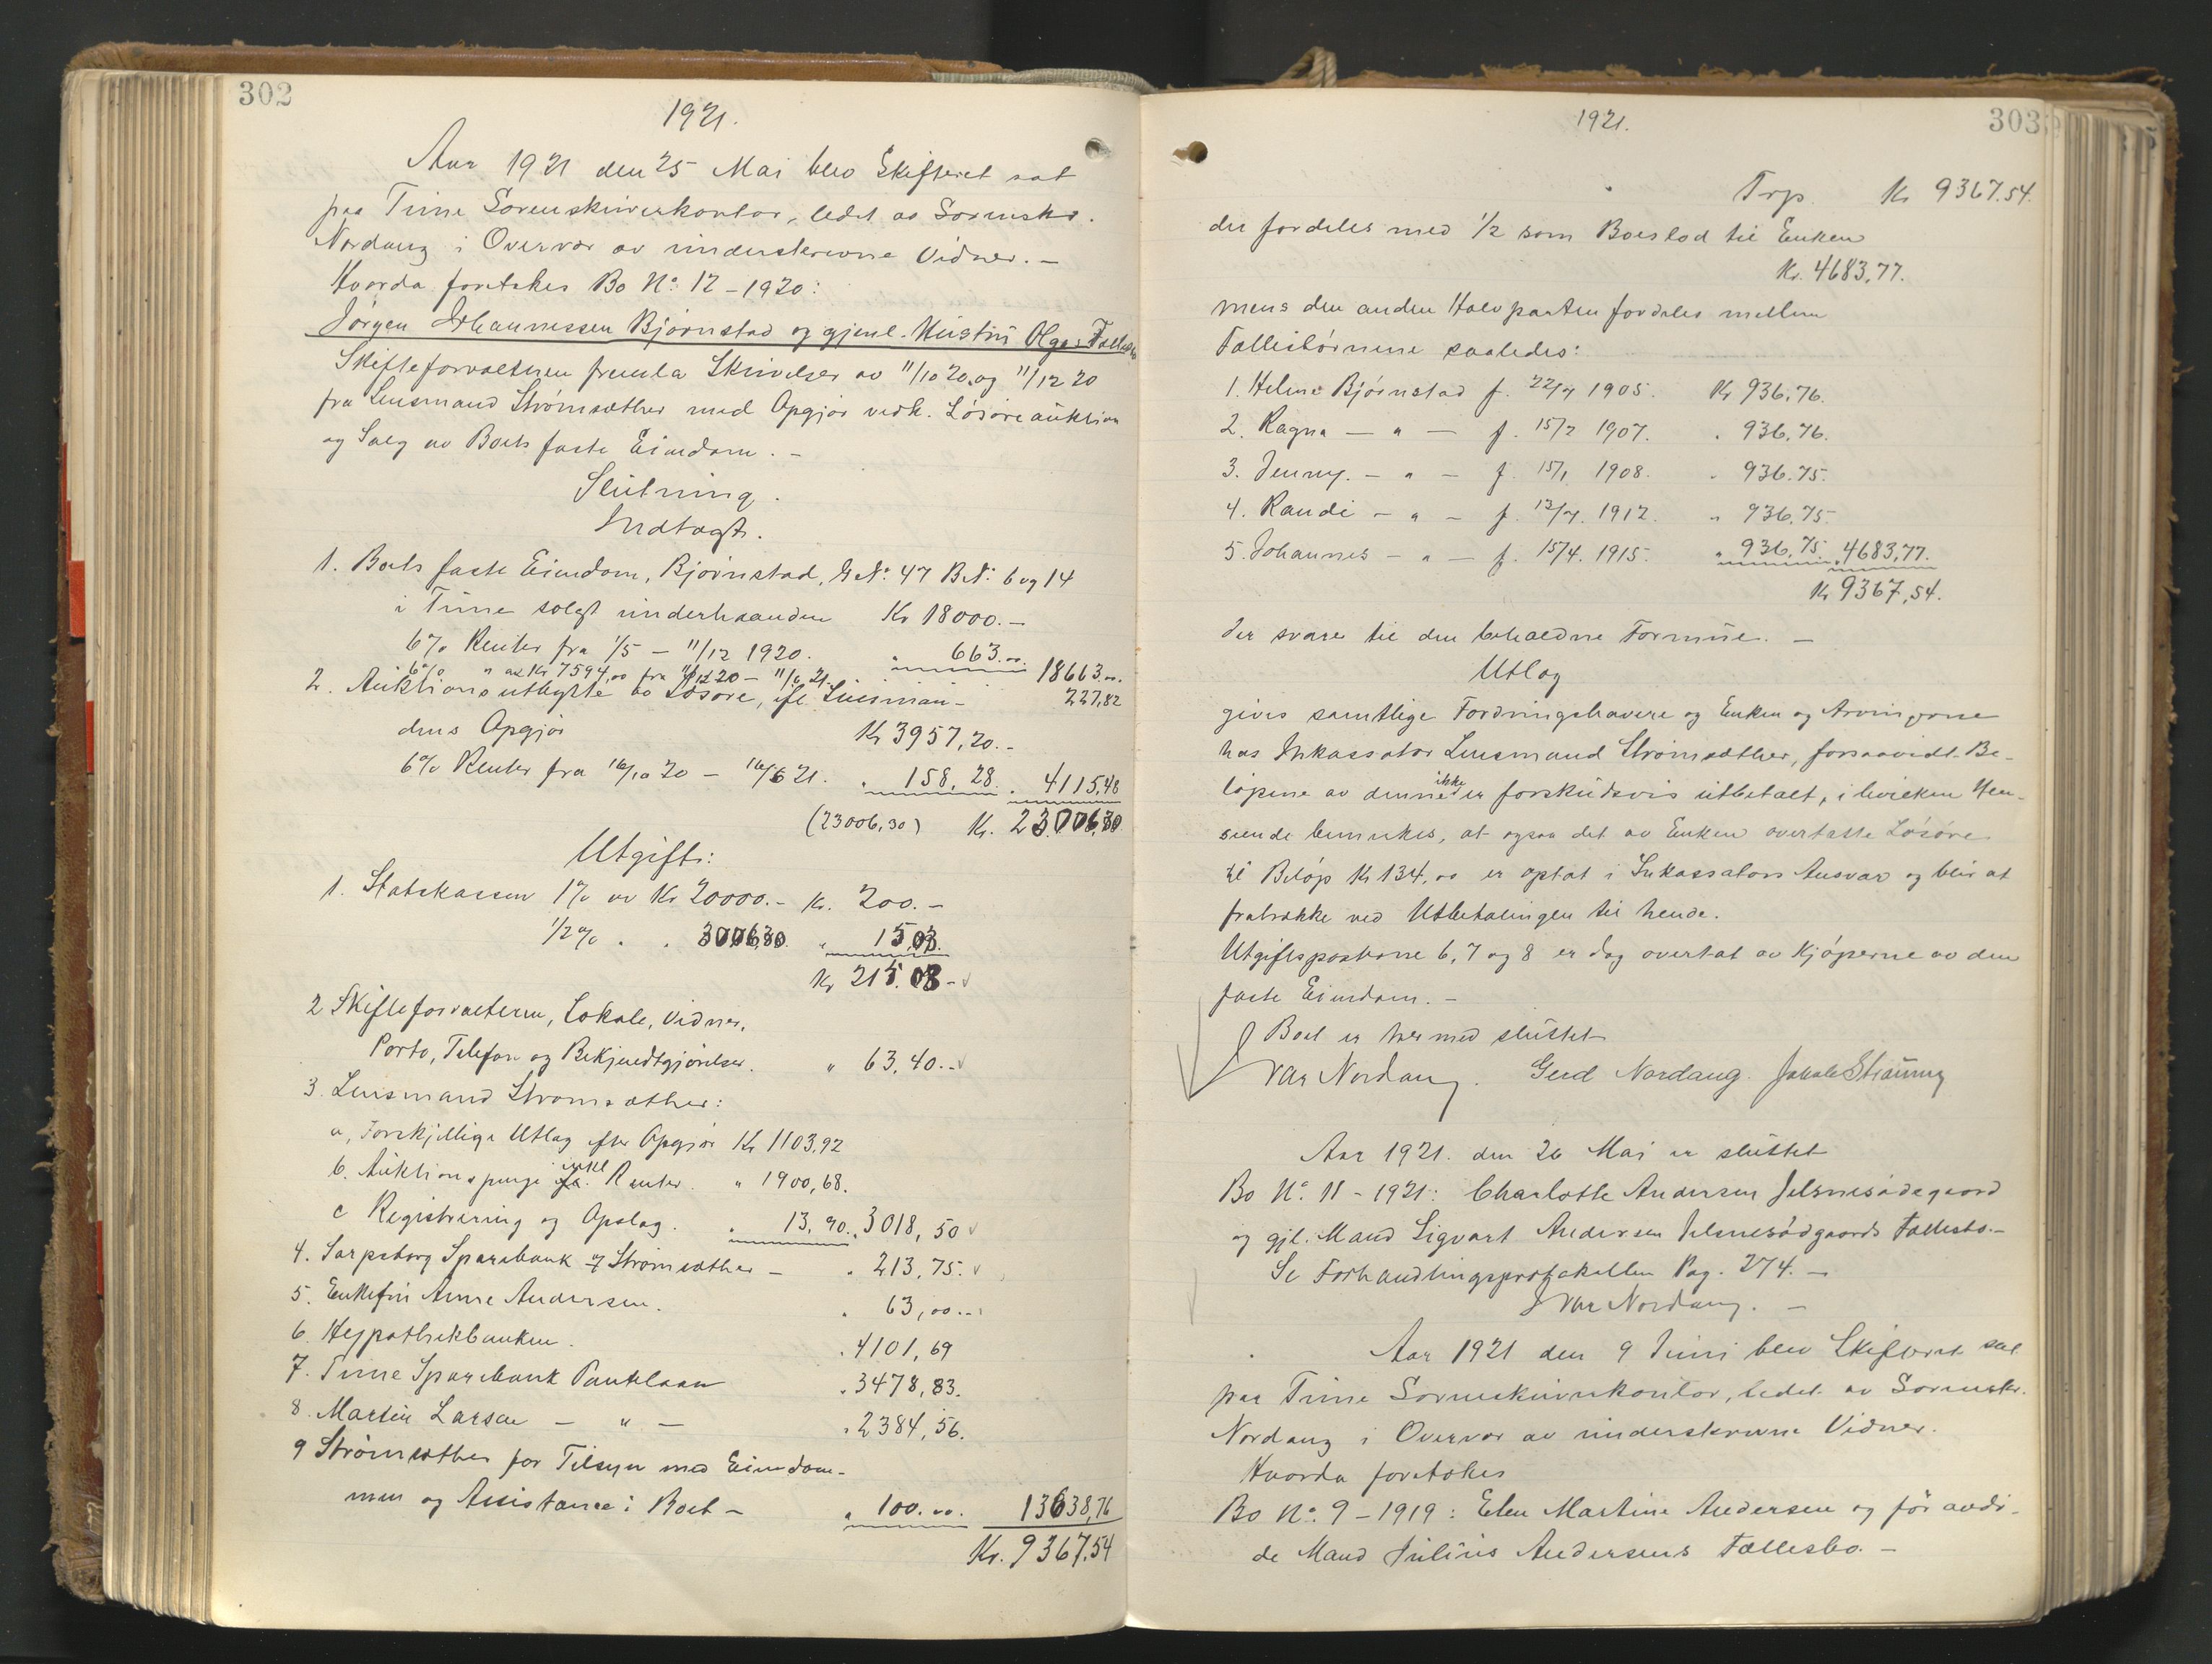 302
1921.
Aar 1921 den 25 Mai blev Skifteret sat
paa Tune Sorenskriverkontor, ledet av Sorenskr.
Nordang i Overvær av underskrevne Vidner. –
Hvorda foretokes Bo No. 12 – 1920:
Jörgen Johannessen Björnstad og gjenl. Hustru Olgas Fællesbo
Skifteforvalteren fremla Skrivelser av 11/10 20 og 11/12 20
fra Lensmand Strömsæther med Opgjör vedk. Lösöreauktion
og Salg av Boets faste Eiendom. –
Slutning.
Indtægt.
1. Boets faste Eiendom, Björnstad, G.No. 47 B.No. 6 og 14
i Tune solgt underhaanden Kr 18000. –
6% Renter fra 1/5 – 11/12 1920. " 663.00 18663.00.
6% " av Kr 7594,00 fra 11/12 20 – 11/6 21. 227,82
2. Auktionsutbytte av Lösöre, ifl. Lensman-
dens Opgjör Kr 3957,20. –
6% Renter fra 16/10 20 – 16/6 21. " 158,28. " 4115,48
(23006,30) Kr. 23006 30
Utgift:
1. Statskassen 1% av Kr 20000. – Kr. 200. –
1/2% " " 3006,30. " 15,03.
Kr 215.03 –
2 Skifteforvalteren, Lokale, Vidner,
Porto, Telefon og Bekjendtgjörelser. " 63,40. –
3. Lensmand Strömsæther:
a, Forskjellige Utlæg efter Opgjör Kr 1103,92
b. Auktionspenge inkl Renter. " 1900,68.
c Registrering og Opslag. " 13,90. " 3018,50
4. Sarpsborg Sparebank v/ Strömsæther – " 213,75.
5. Enkefru Anne Andersen. " 63,00. –
6. Hypothekbanken. " 4101,69
7. Tune Sparebank Pantelaan " 3478,83.
8. Martin Larsen – " – " 2384,56.
9 Strömsæther for Tilsyn med Eiendom-
men og Assistance i Boet – " 100.00. 13638,76
Kr. 9367,54
303
1921.
Trp. Kr 9367.54.
der fordeles med 1/2 som Boeslod til Enken
Kr. 4683,77.
mens den anden Halvparten fordeles mellem
Fællesbörnene saaledes:
1. Helene Björnstad f. 22/4 1905. Kr 936,76.
2. Ragna – " – f. 15/2 1907. " 936,76.
3. Jenny. – " – f. 15/1 1908. " 936.75.
4. Randi – " – f. 12/4. 1912. " 936,75.
5. Johannes – " – f. 15/4. 1915. " 936,75. " 4683,77.
Kr 9367,54.
der svarer til den beholdne Formue. –
Utlæg
gives samtlige Fordringshavere og Enken og Arvingerne
hos Inkassator Lensmand Strömsæther, forsaavidt Be-
löpene av denne ikke er forskudsvis utbetalt, i hvilken Hen-
seende bemerkes, at ogsaa det av Enken overtatte Lösöre
til Belöp Kr 134,00 er optat i Inkassators Ansvar og blir at
fratrække ved Utbetalingen til hende.
Utgiftsposterne 6, 7 og 8 er dog overtat av Kjöperne av den
faste Eiendom. –
Boet er hermed sluttet
Ivar Nordang. Gerd Nordang.
Aar 1921. den 26 Mai er sluttet
Bo No. 11 – 1921: Charlotte Andersen Jelsnesödegaard
og gjl. Mand Sigvart Andersen Jelsnesödegaards Fællesbo. –
Se Forhandlingsprotokollen Pag. 274. –
Ivar Nordang. –
Aar 1921 den 9 Juni blev Skifteret sat
paa Tune Sorenskriverkontor, ledet av Sorenskr.
Nordang i Overvær av underskrevne Vidner.
Hvorda foretokes
Bo No. 9 – 1919: Elen Martine Andersen og för avdö-
de Mand Julius Andersens Fællesbo. –